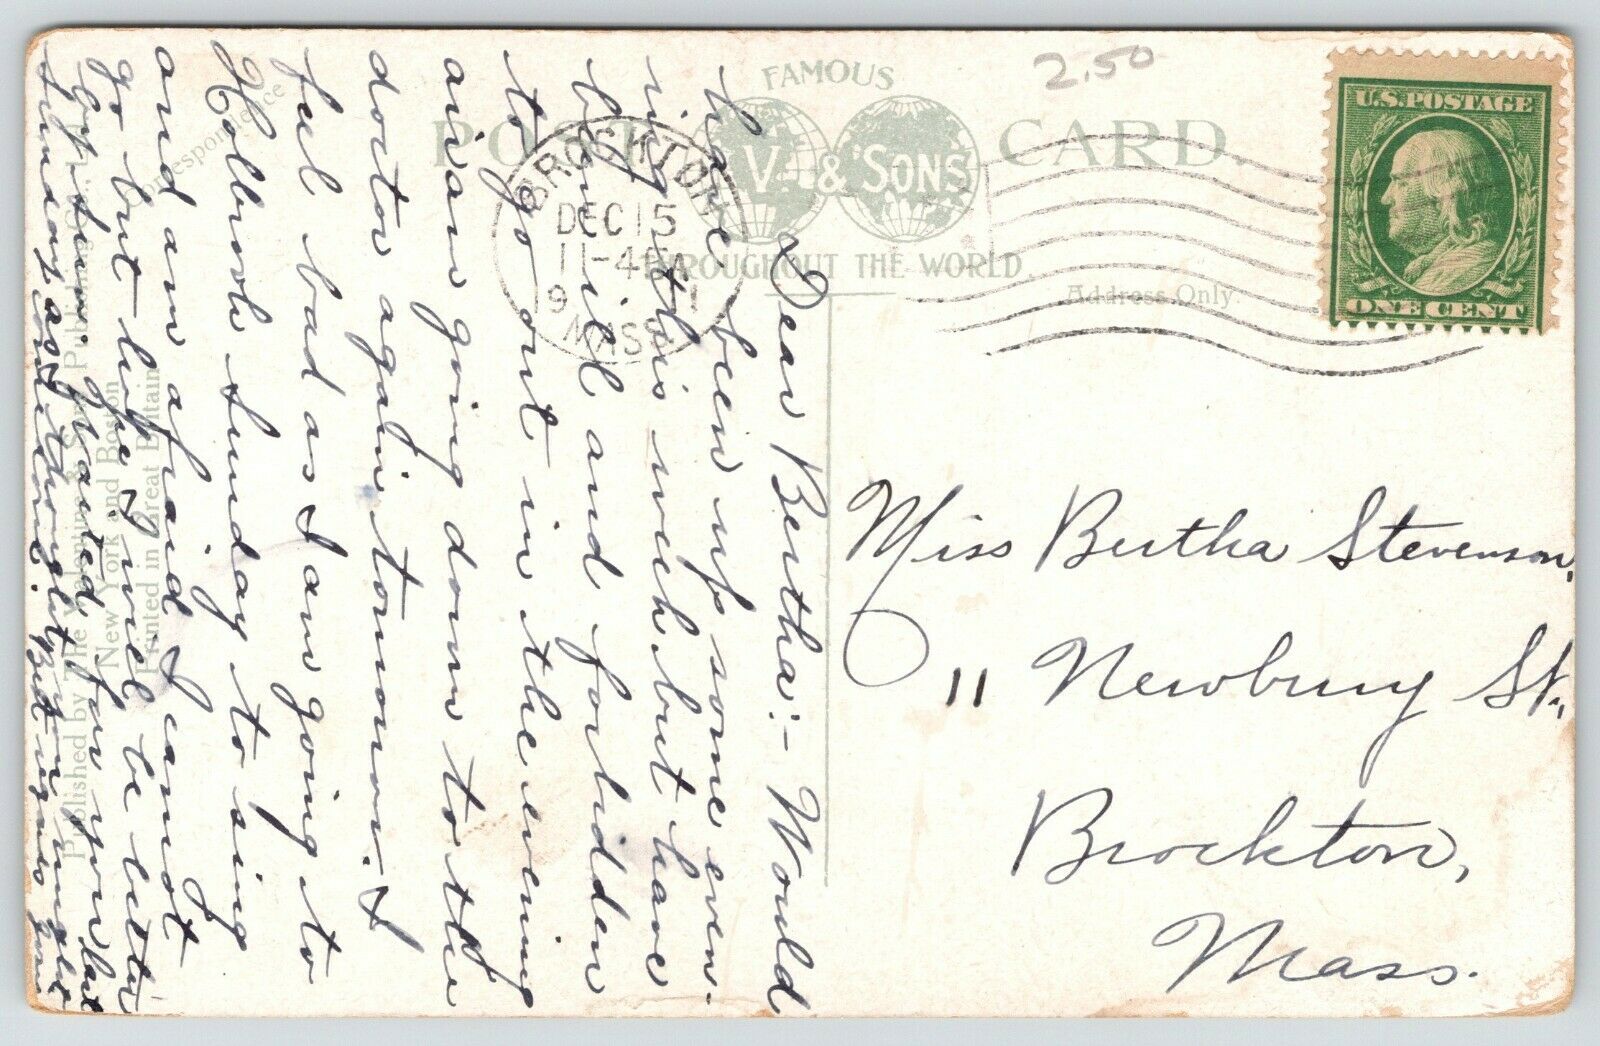 2.50
FAMOUS
POST CARD.
V & SONS
THROUGHOUT THE WORLD.
Address Only.
Correspondence
BROCKTON
DEC 15
11-4
MASS
U.S. POSTAGE
ONE CENT
Dear Bertha:- Would
have been up some even-
ing this week but have
been ill and forbidden
to go out in the evening
am going down to the
doctor again tomorrow. I
feel bad as I am going to
Holbrook Sunday to sing
and am afraid I cannot
go but hope I will be better
by then. I waited for you last
Sunday as I thought you might
come.
Miss Bertha Stevenson,
11 Newbury St.,
Brockton,
Mass.
Published by The & Sons Publishing
New York and Boston
Printed in Great Britain